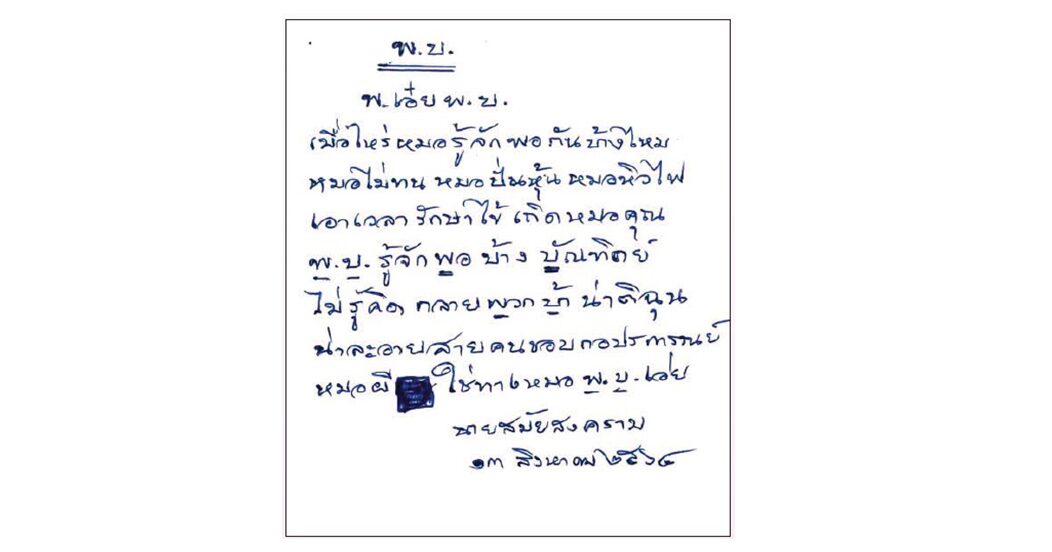 พ.บ.
พ.เอ๋ย พ.บ.
เมื่อไหร่หมอรู้จักพอกันบ้างไหม
หมอไม่ทน หมอปั่นหุ้น หมอหิวไฟ
เอาเวลารักษาไข้ เถิดหมอคุณ
พ.บ. รู้จักพอบ้าง บัณฑิตย์
ไม่รู้คิด กลายพวกบ้า น่าติฉุน
น่าละอายสายคนชอบกอปรการณ์
หมอผี ใช่ทางหมอ พ.บ.เอ๋ย
นายสมัยสงคราม
๑๓ สิงหาคม ๒๕๖๔